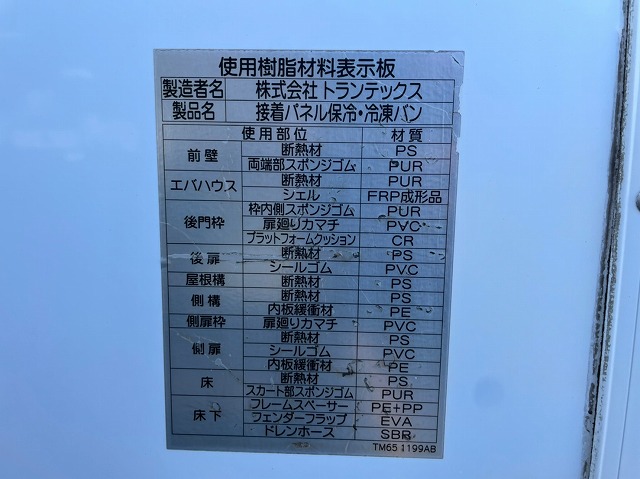 使用樹脂材料表示板
製造者名 株式会社トランテックス
製品名 接着パネル保冷・冷凍バン
使用部位 材質
前壁 断熱材 PS
両端部スポンジゴム PUR
エバハウス 断熱材 PUR
シェル FRP成形品
後門枠 枠内側スポンジゴム PUR
扉廻りカマチ PVC
プラットフォームクッション CR
後扉 断熱材 PS
シールゴム PVC
屋根構 断熱材 PS
側構 断熱材 PS
内板緩衝材 PE
側扉枠 扉廻りカマチ PVC
側扉 断熱材 PS
シールゴム PVC
内板緩衝材 PE
床 断熱材 PS
スカート部スポンジゴム PUR
床下 フレームスペーサー PE+PP
フェンダーフラップ EVA
ドレンホース SBR
TM65 1199AB